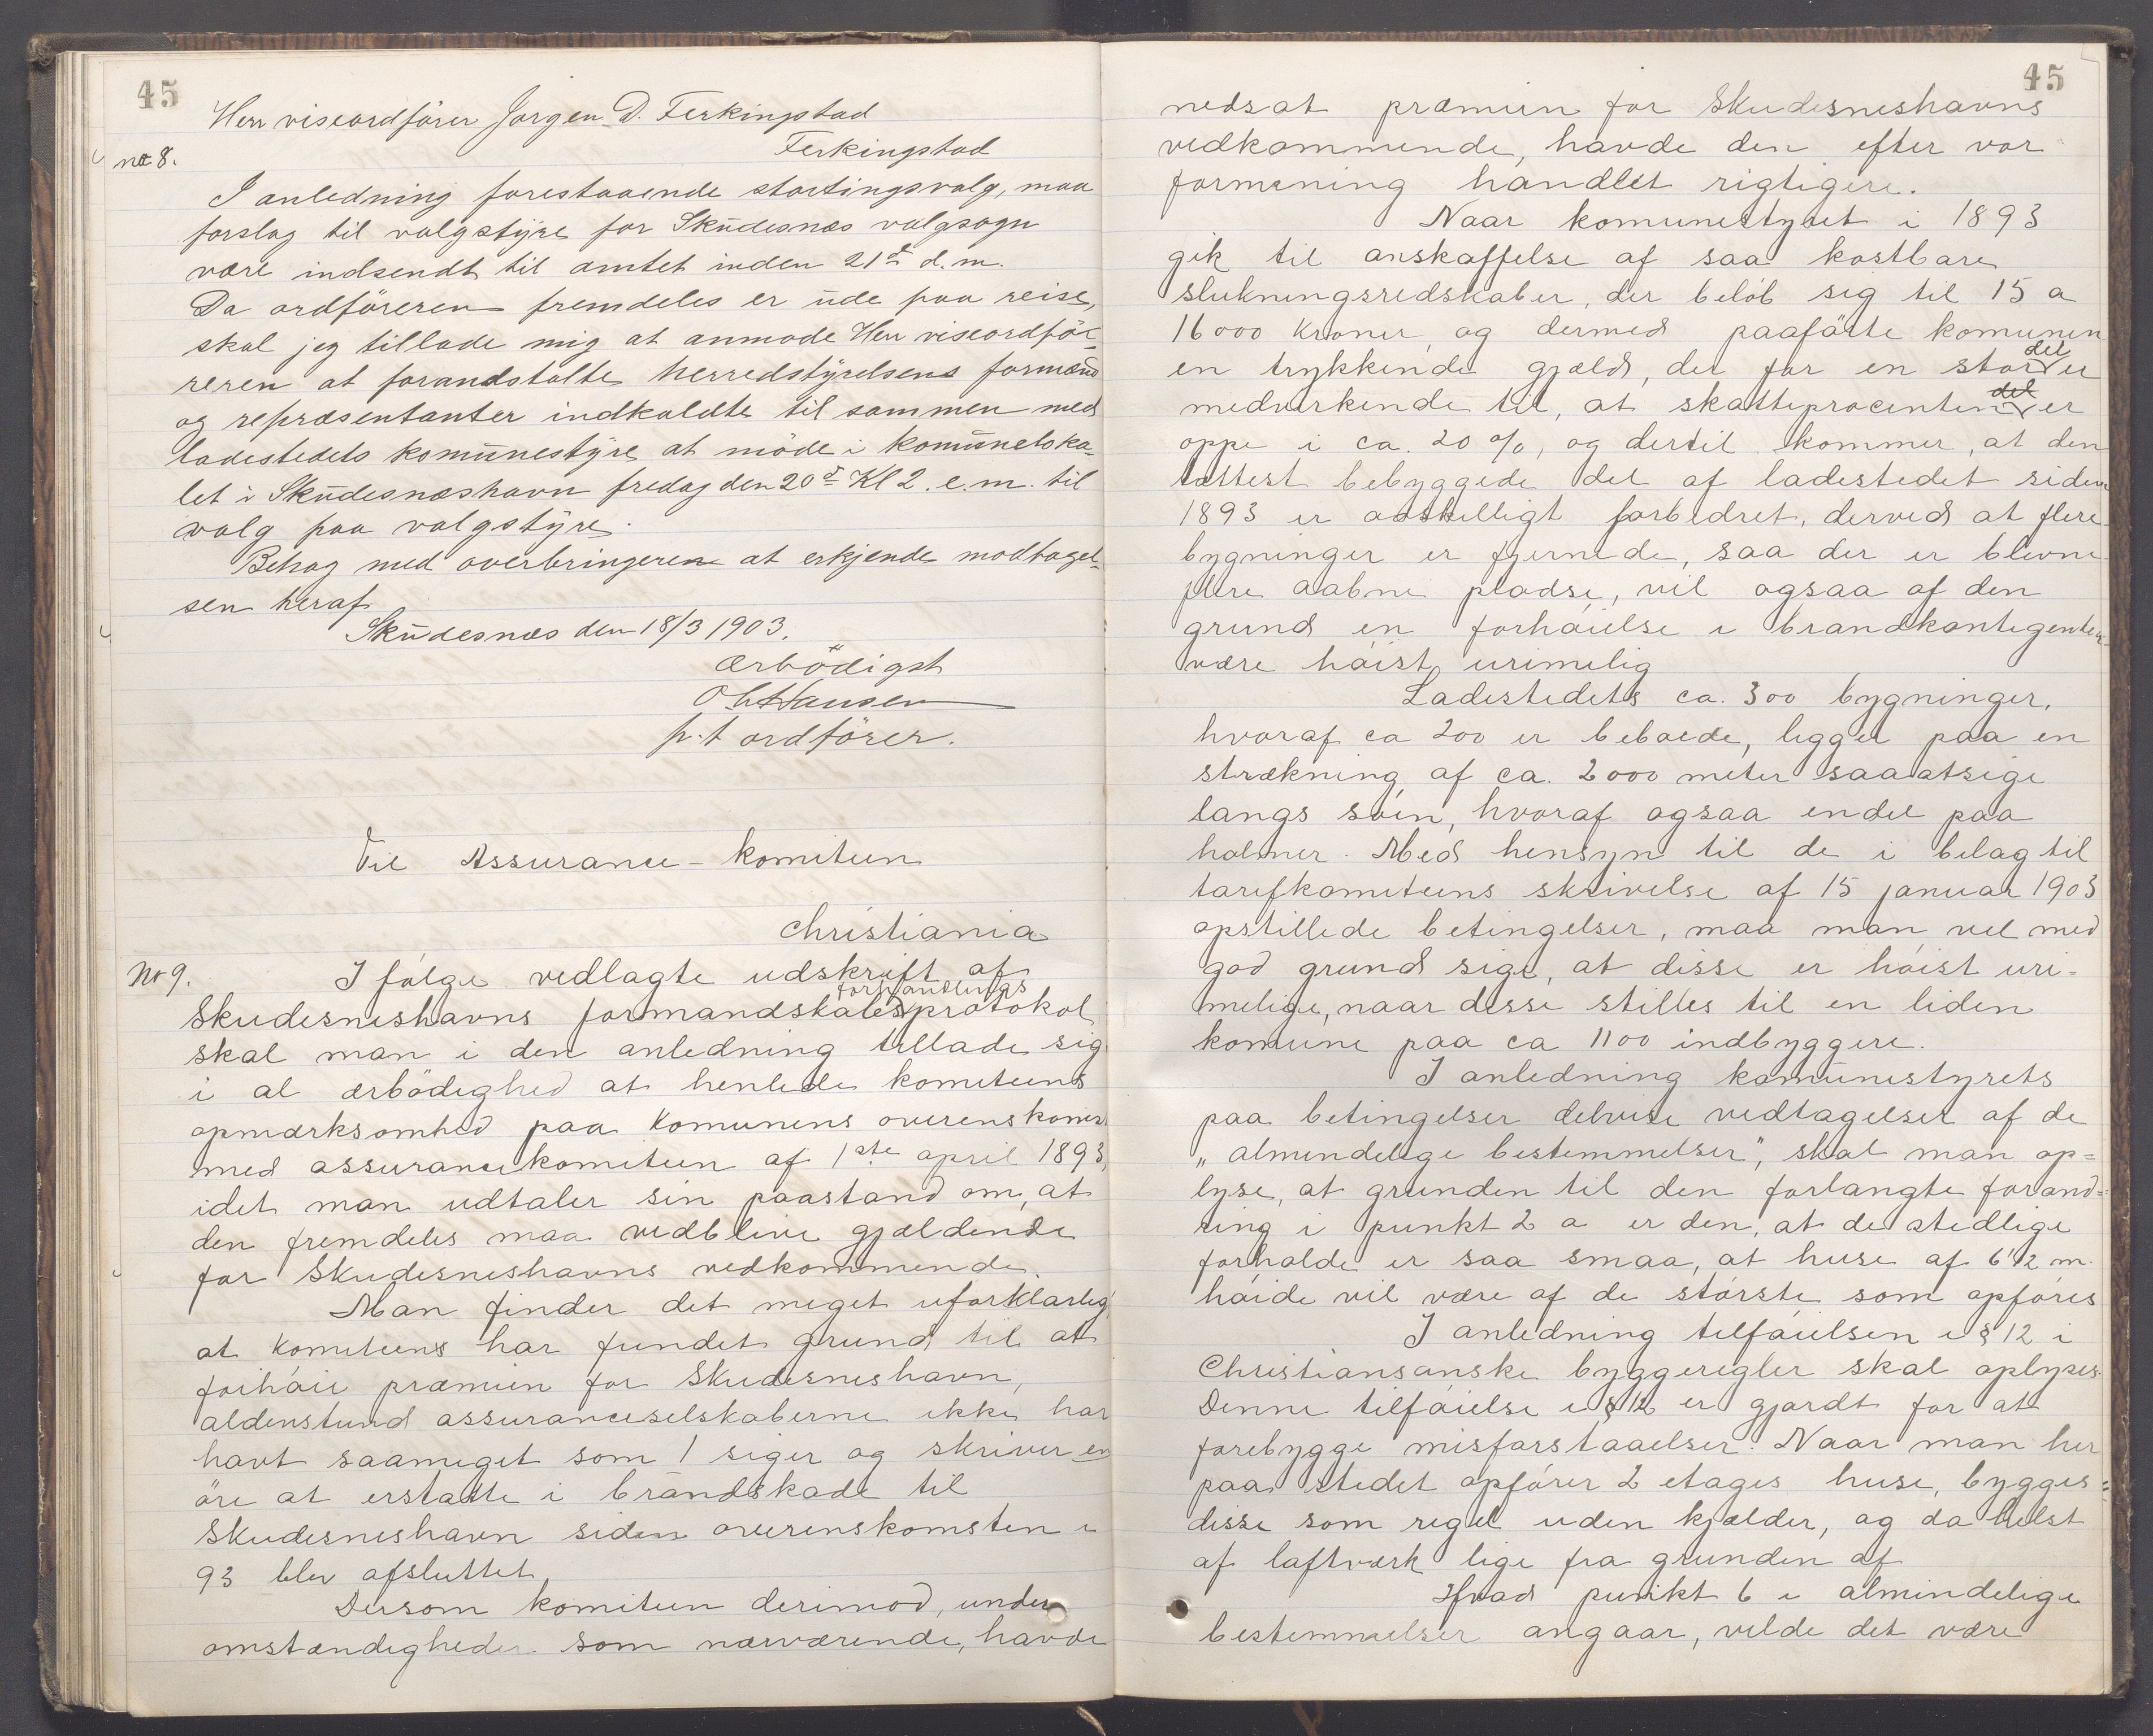 45
Herr viseordförer Jorgen D. Ferkingstad
Ferkingstad
no 8.
I anledning forestaaende stortingsvalg, maa
forslag til valgstÿre for Skudesnæs valgsogn
være indsendt til amtet inden 21de d.m.
Da ordföreren fremdeles er ude paa reise,
skal jeg tillade mig at anmode Herr viseordför-
reren at foranstalte herredstÿrelsens formænd
og repræsentanter indkaldte til sammen med
ladestedets komunestÿre at möde i komuneloka-
let i Skudesnæshavn fredag den 20de Kl 2. e.m. til
valg paa valgstÿre.
Behag med overbringeren at erkjende modtagel-
sen heraf
Skudesnæs den 18/3 1903.
ærbödigst
O Chr Hansen
p.t ordförer.
Til Assurance-komiteen
Christiania
No 9.
I følge vedlagte udskrift af
forhandlings
Skudesneshavns formandskabs protokol
skal man i den anledning tillade sig
i al ærbödighed at henlede komiteens
opmærksomhed paa Komunens overenskomst
med assurancekomiteen af 1ste april 1893,
idet man udtaler sin paastand om, at
den fremdeles maa vedblive gjældende
for Skudesneshavns vedkommende.
Man finder det meget uforklarlig,
at Komiteens har fundet grund til at
forhøie præmien for Skudesneshavn,
aldenstund assuranceselskaberne ikke har
havt saameget som 1 siger og skriver en
öre at erstatte i brandskade til
Skudesneshavn siden overenskomsten i
93 blev afsluttet.
Dersom komiteen derimod, under
omstændigheder som nærværende, havde
45
nedsat præmien for Skudesneshavns
vedkommende, havde den efter vor
formening handlet rigtigere.
Naar komunestyret i 1893
gik til anskaffelse af saa kostbare
slukningsredskaber, der beløb sig til 15 a
16000 Kroner, og dermed paaførte komunen
en trykkende gjæld, der for en stor del er
medvirkende til, at skatteprocenten del er
oppe i ca. 20 %, og dertil kommer, at den
tættest bebyggede del af ladestedet siden
1893 er adskelligt forbedret, derved at flere
bygninger er fjernede, saa der er blevne
flere aabne pladse, vil ogsaa af den
grund en forhøielse i brandkontigenten
være høist urimelig
Ladestedets ca. 300 bygninger,
hvoraf ca 200 er beboede, ligger paa en
strækning af ca. 2000 meter saaatsige
langs søen, hvoraf ogsaa endel paa
holmer. Med hensyn til de i belag til
tarifkomiteens skrivelse af 15 januar 1903
opstillede betingelser, maa man vel med
god grund sige, at disse er høist uri-
melige, naar disse stilles til en liden
komune paa ca 1100 indbyggere.
I anledning komunestyrets
paa betingelser delvise vedtagelser af de
„almindelige bestemmelser", skal man op=
lyse, at grunden til den forlangte forand=
ring i punkt 2 a er den, at de stedlige
forholde er saa smaa, at huse af 6 1/2 m.
høide vil være af de største som opføres
I anledning tilføielsen i § 12 i
Christiansanske byggeregler skal oplyses.
Denne tilføielse i § 12 er gjordt for at
forebygge misforstaaelser. Naar man her
paa stedet opfører 2 etages huse, bygges=
disse som regel uden kjælder, og da helst
af laftværk lige fra grunden af
Hvad punkt 6 i almindelige
bestemmelser angaar, vilde det være